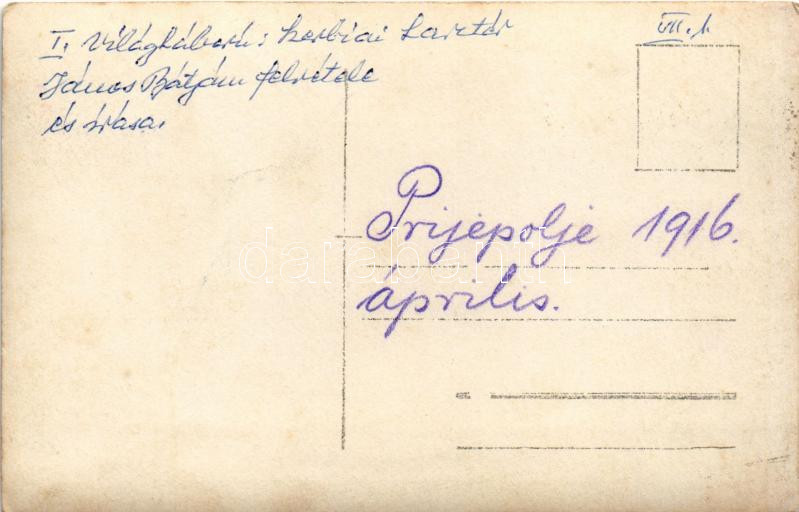 I. Világháború: szerbiai harctér
VII. 1.
János Bátyám felvétele
és írása.
Prijepolje 1916.
április.
darabanth